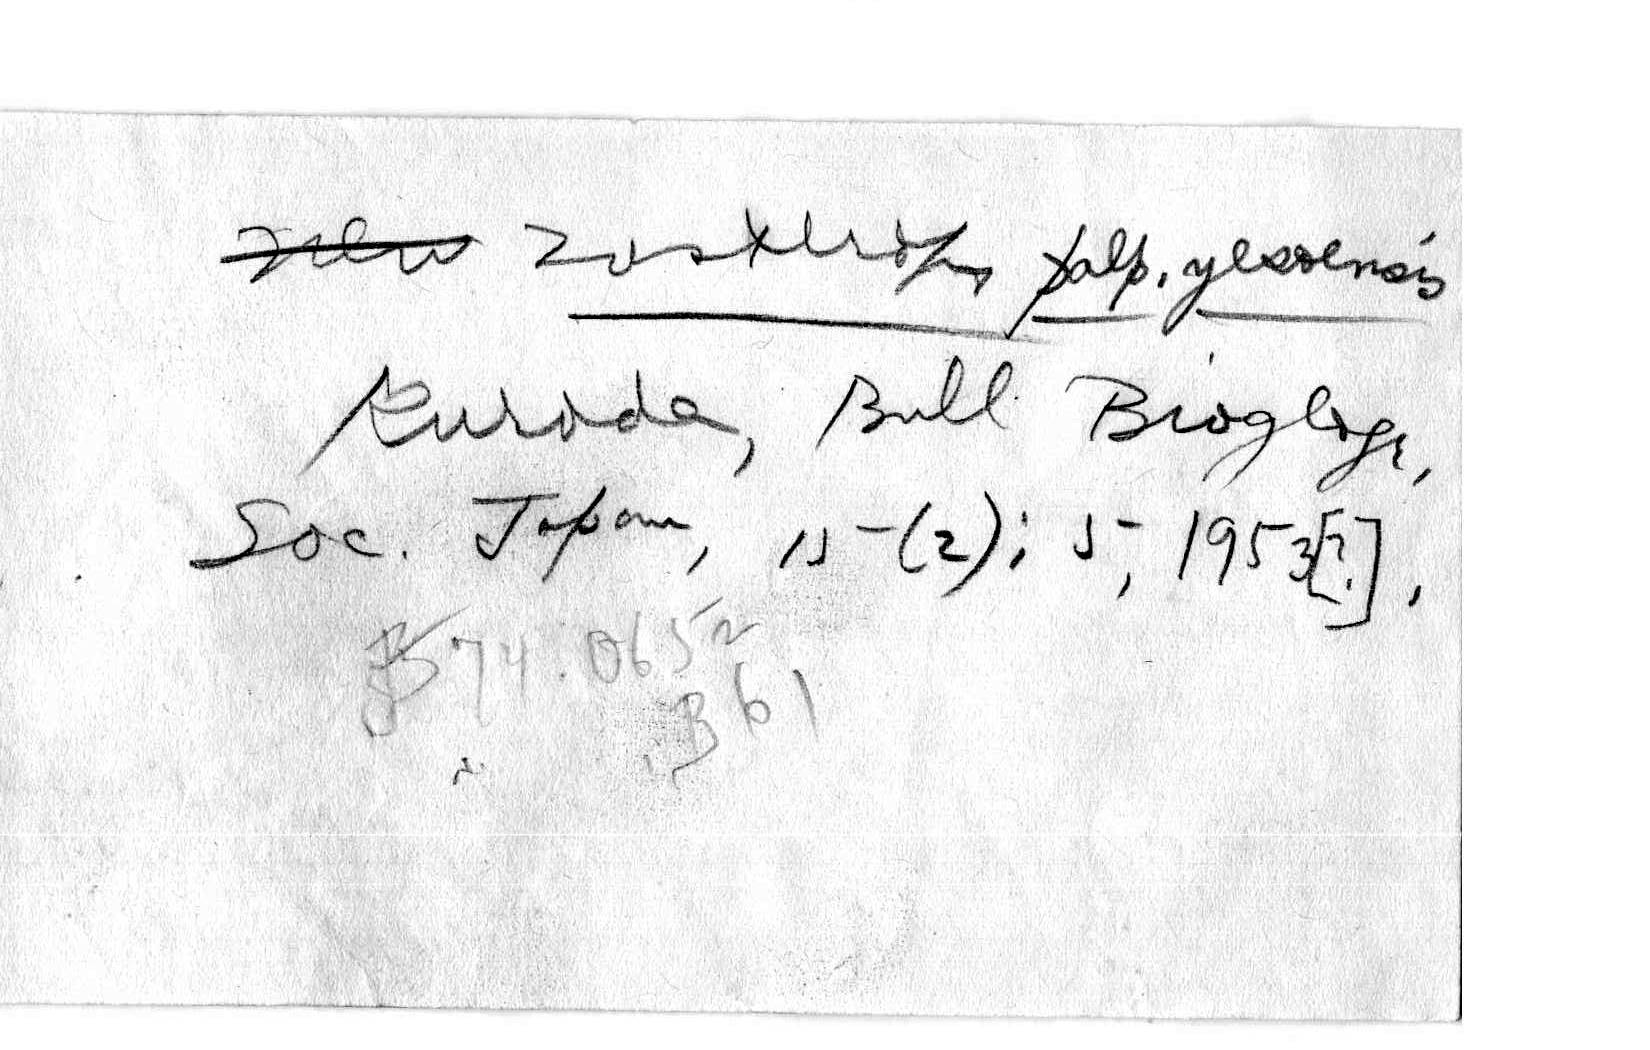 Zosterops palp. yesoensis
Kuroda, Bull Biogeogr,
Soc. Japan, 15-(2); 5, 1953[?],
574.0652
B61